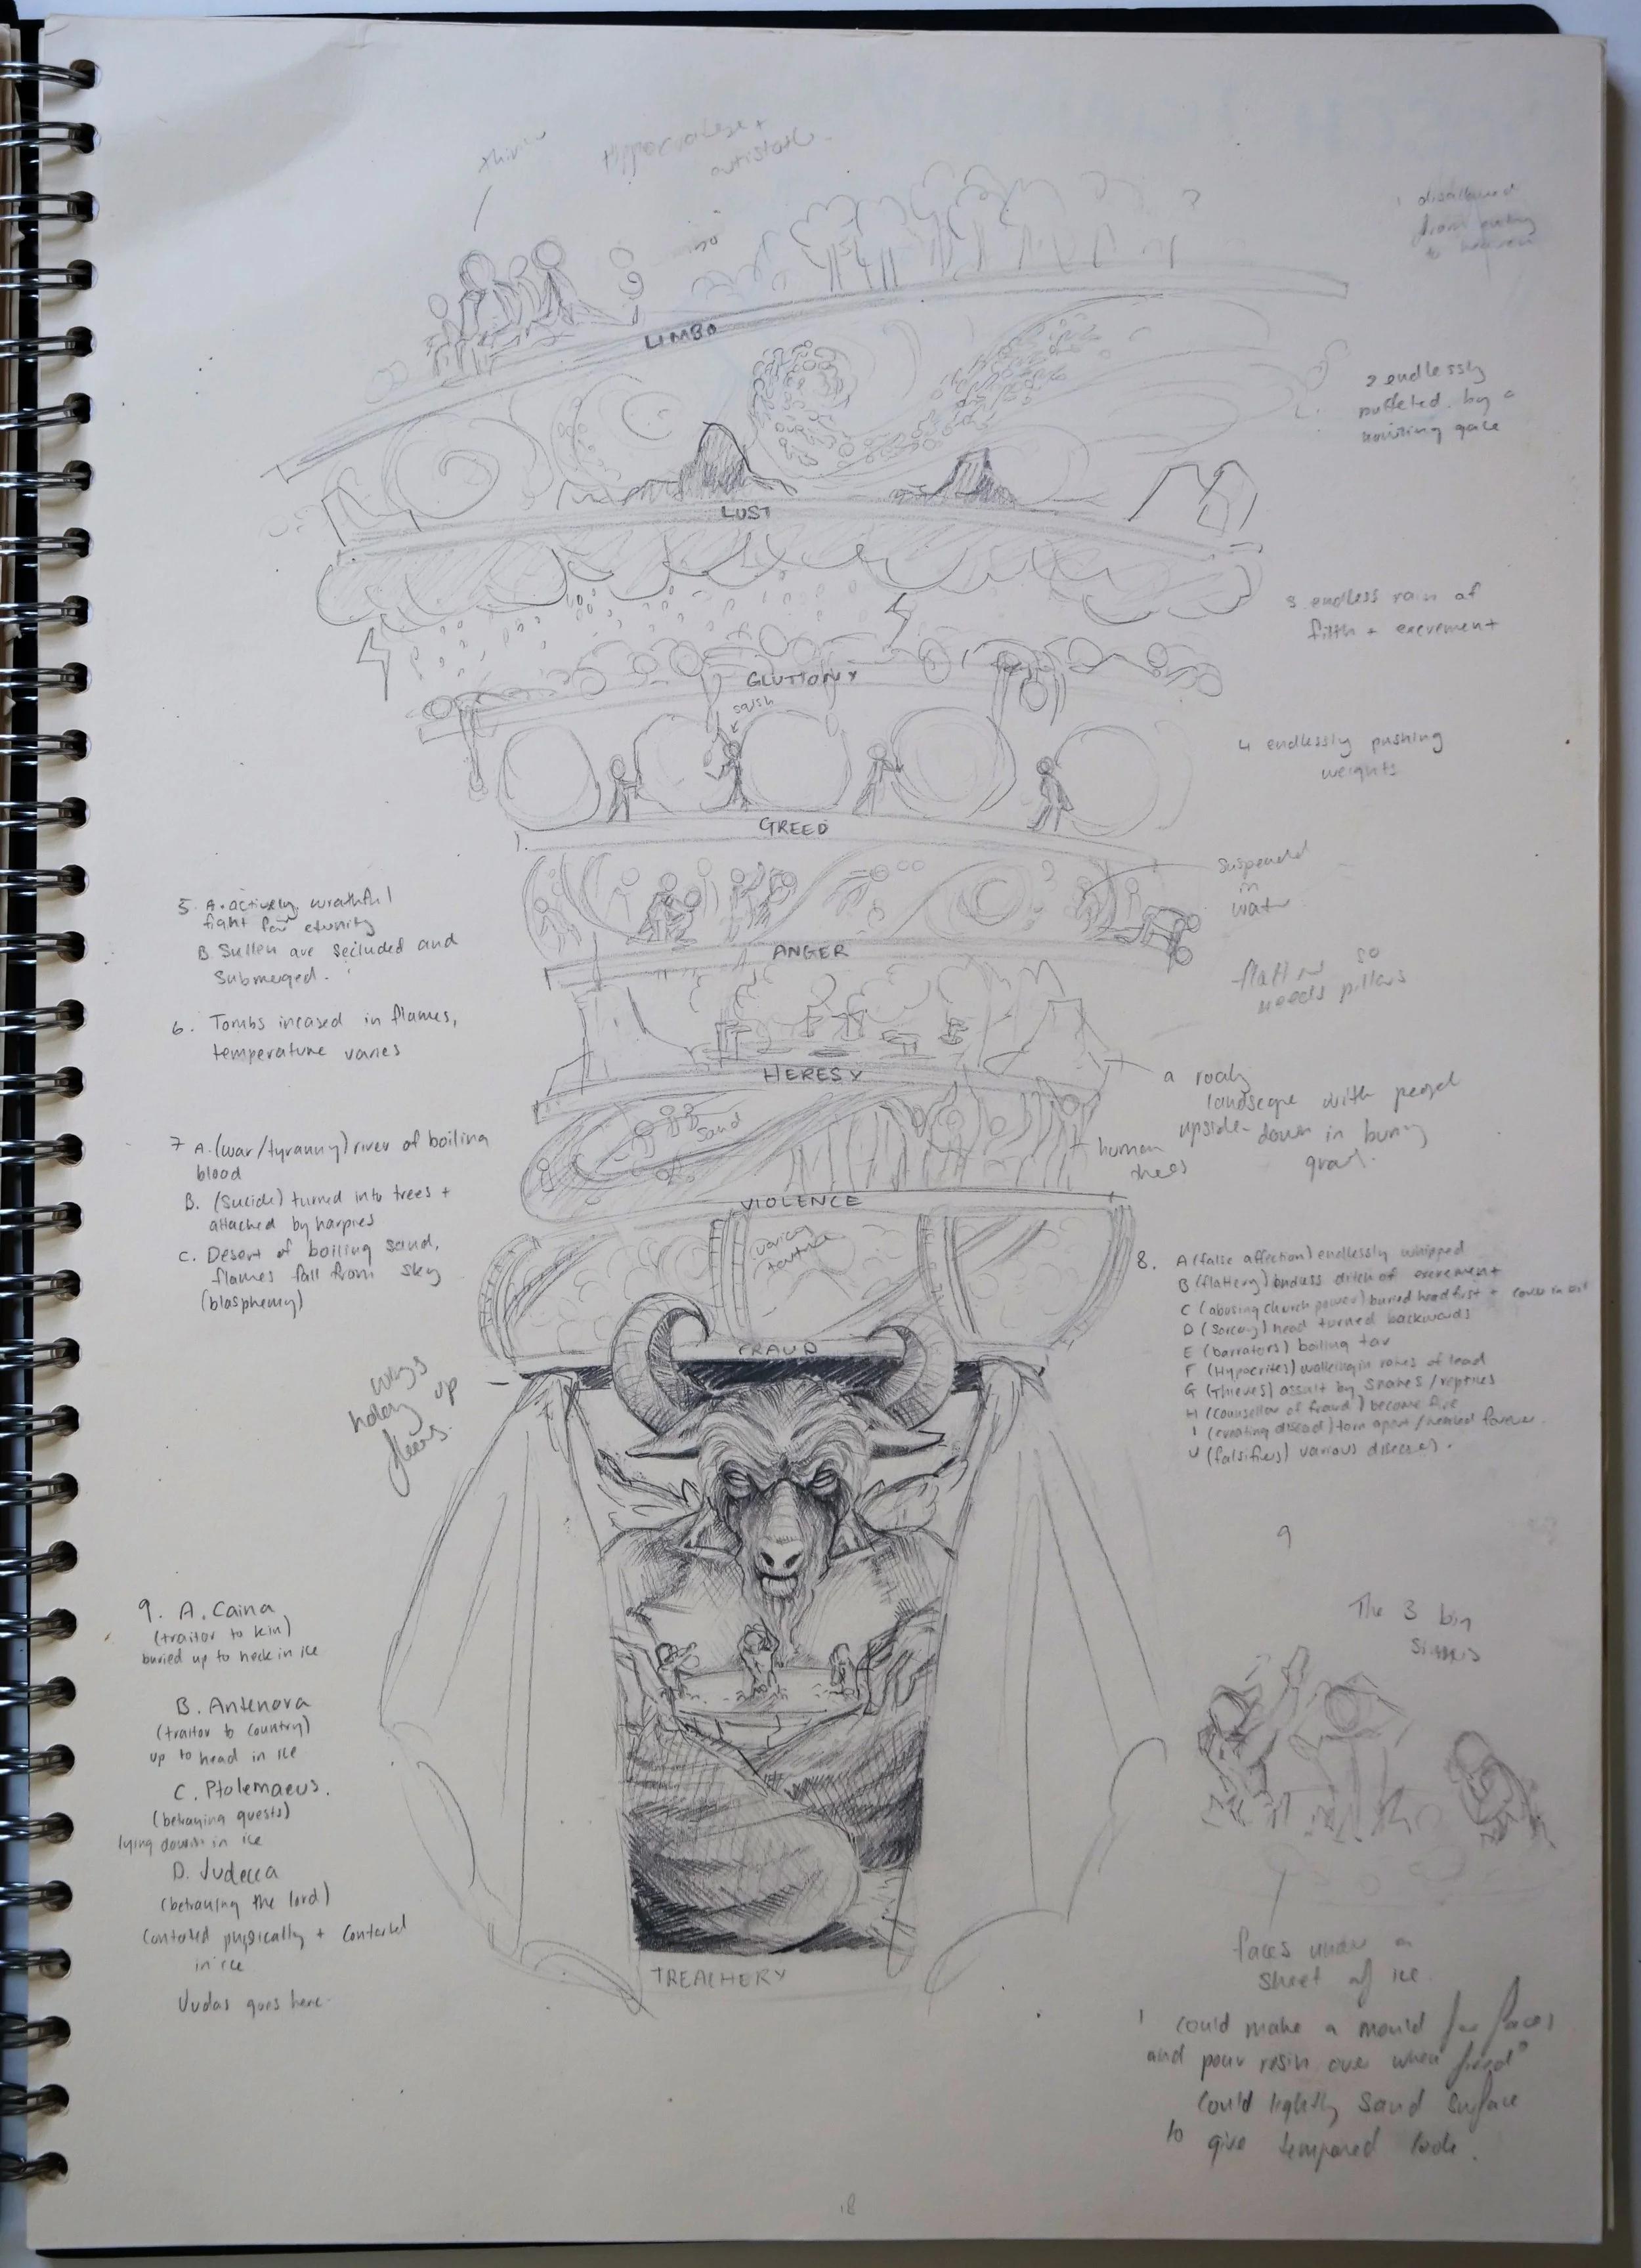 LIMBO
1 disallowed
from
to heaven
LUST
2 endlessly
buffeted by a
howling gale
3 endless rain of
filth + excrement
GLUTTONY
squish
4 endlessly pushing
weights
GREED
suspended
in
water
5. A. actively wrathful
fight for eternity
B. Sullen are secluded and
submerged.
ANGER
so
needs pillars
6. Tombs incased in flames,
temperature varies
HERESY
a rocky
landscape with people
upside-down in
sand
human
trees
7 A. (war/tyranny) river of boiling
blood
B. (Suicide) turned into trees +
attacked by harpies
C. Desert of boiling sand,
flames fall from sky
(blasphemy)
VIOLENCE
various
torture
8. A (false affection) endlessly whipped
B (flattery) endless ditch of excrement
C (abusing church power) buried headfirst + cover in
D (Sorcery) head turned backwards
E (barrators) boiling tar
F (Hypocrites) walking in robes of lead
G (Thieves) assalt by snakes/reptiles
H (counsellor of fraud) become fire
I (creating discord) torn apart/healed forever.
J (falsifiers) various diseases.
FRAUD
wings
holding up
9
9. A. Caina
(traitor to kin)
buried up to neck in ice
B. Antenora
(traitor to country)
up to head in ice
C. Ptolemaeus.
(betraying guests)
lying down in ice
D. Judecca
(betraying the lord)
Contorted physically + contorted
in ice
Judas goes here.
TREACHERY
The 3 big
sinners
faces under a
sheet of ice.
I could make a mould for faces
and pour resin over when fired
could lightly sand surface
to give tempared look.
18